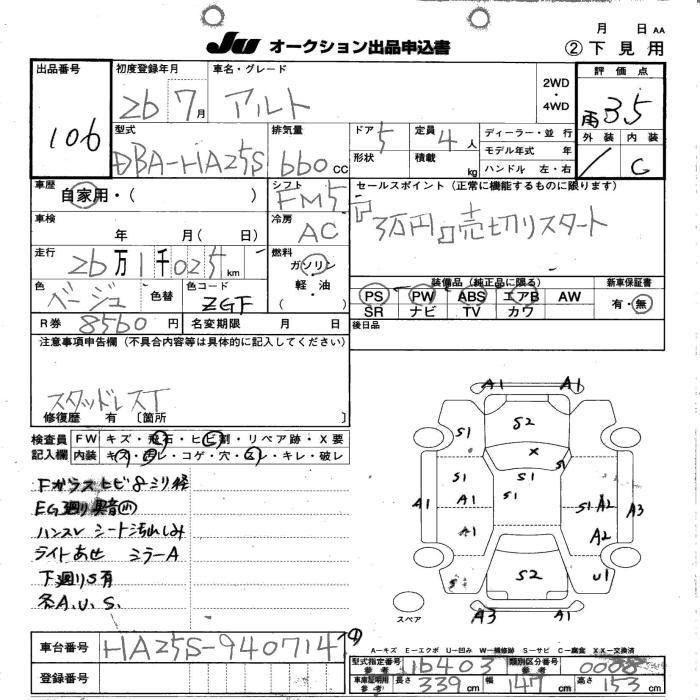 月 日 AA
Ju オークション出品申込書
② 下見用
出品番号
106
初度登録年月
26 7月
車名・グレード
アルト
2WD
・
4WD
評価点
雨 35
外装 内装
/ C
型式
DBA-HA25S
排気量
660 CC
ドア 5
定員 4人
形状
積載 kg
ディーラー・並行
モデル年式 年
ハンドル 左・右
車歴
自家用・( )
シフト
FM5
セールスポイント（正常に機能するものに限ります）
3万円 売切リスタート
車検
年 月( 日)
冷房
AC
走行
26万1千025km
燃料
ガソリン
・
軽・油
( )
色
ベージュ
色替
色コード
ZGF
装備品（純正品に限る）
PS PW ABS エアB AW
SR ナビ TV カワ
新車保証書
有・無
R券 8560円
名変期限 月 日
後日品
注意事項申告欄（不具合内容等は具体的に記入してください）
スタッドレスT
修復歴 有 〔箇所 〕
検査員
記入欄
FW キズ・飛石・ヒビ割・リペア跡・X要
内装 キズ・汚レ・コゲ・穴・スレ・キレ・破レ
Fガラスヒビ8ミリ径
EG廻り異音(小)
ハンスレ シート汚れしみ
ライトあせ ミラーA
下廻りS有
各A.U.S.
A1 A1
S2
S1
X
S1
S1 S1
A1 A1 S1 A2 A3
A1 A2
S S2 U1
スペア
A3 A1
A-キズ E-エクボ U-凹み W-補修跡 S-サビ C-腐食 XX-交換済
車台番号 HA25S-940714
④
登録番号
型式指定番号
参考
16403
類別区分番号
参考
0008
車庫証明用
参考
長さ 339cm 幅 147cm 高さ 153cm